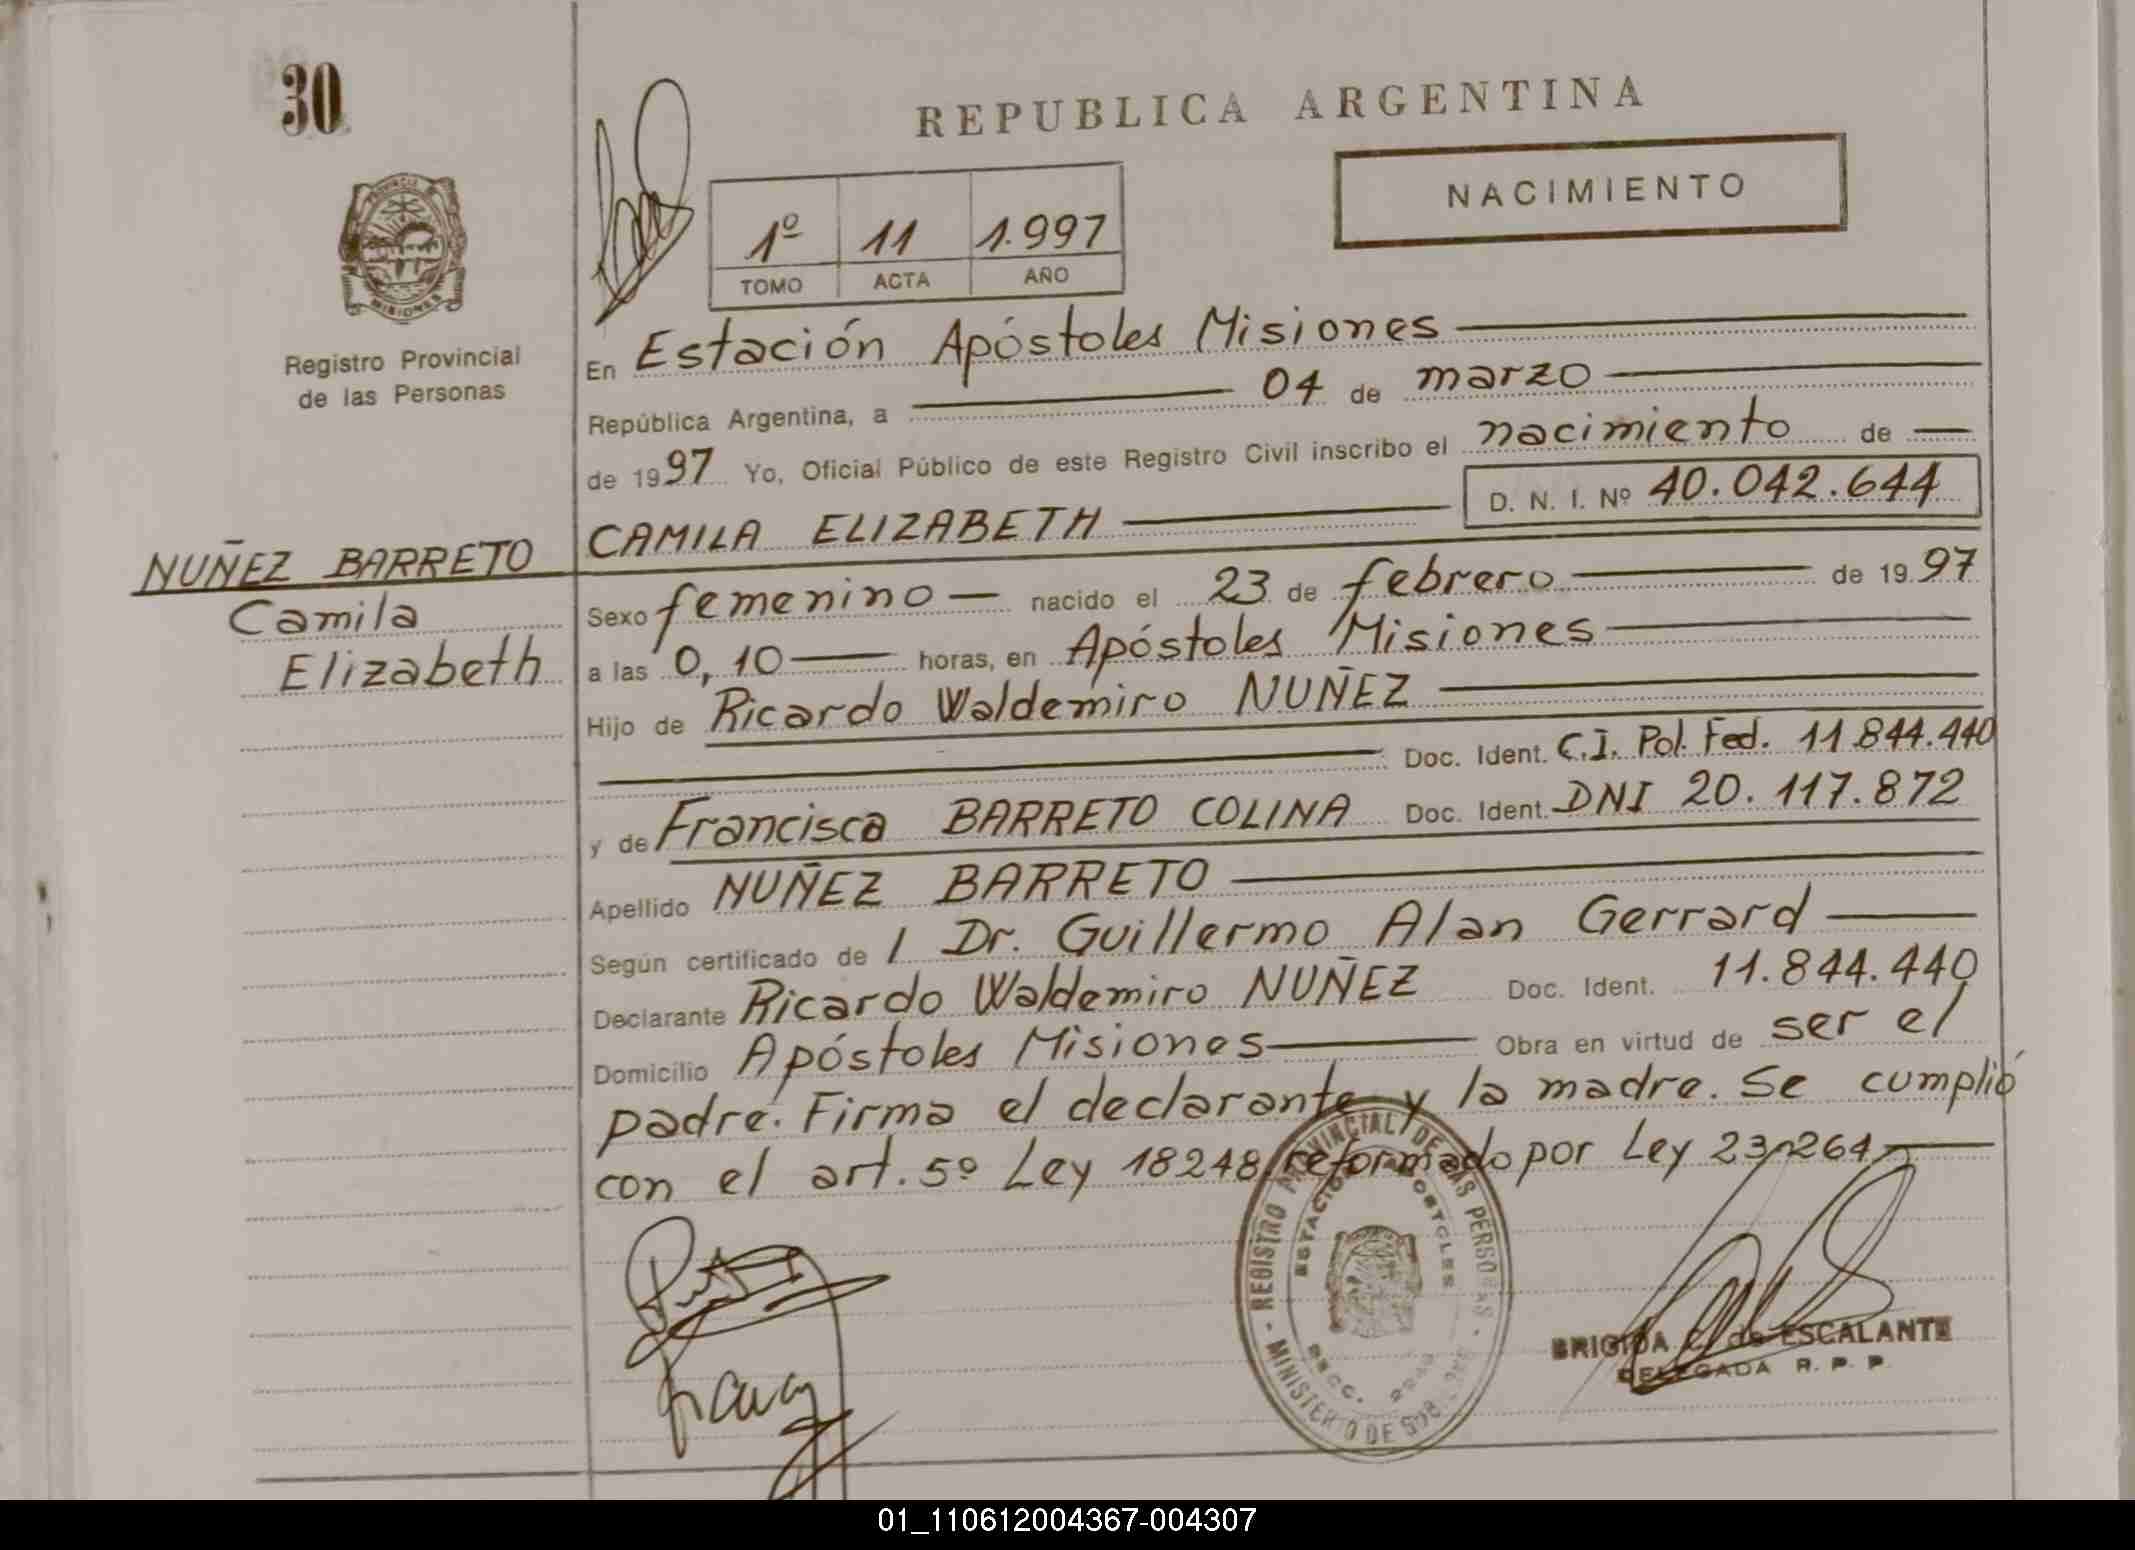 30
REPUBLICA ARGENTINA
NACIMIENTO
1º 11 1.997
TOMO ACTA AÑO
PROVINCIA
MISIONES
Registro Provincial
de las Personas
En Estación Apóstoles Misiones
República Argentina, a 04 de marzo
de 1997 Yo, Oficial Público de este Registro Civil inscribo el nacimiento de
D. N. I. Nº 40.042.644
NUÑEZ BARRETO CAMILA ELIZABETH
Camila
Elizabeth
Sexo femenino nacido el 23 de febrero de 1997
a las 0,10 horas, en Apóstoles Misiones
Hijo de Ricardo Waldemiro NUÑEZ
Doc. Ident. C.I. Pol. Fed. 11.844.440
y de Francisca BARRETO COLINA Doc. Ident. DNI 20.117.872
Apellido NUÑEZ BARRETO
Según certificado de l Dr. Guillermo Alan Gerrard
Declarante Ricardo Waldemiro NUÑEZ Doc. Ident. 11.844.440
Domicilio Apóstoles Misiones Obra en virtud de ser el
padre. Firma el declarante y la madre. Se cumplió
con el art. 5º Ley 18248 reformado por Ley 23.264
REGISTRO PROVINCIAL DE LAS PERSONAS
ESTACION APOSTOLES
MINISTERIO DE
BRIGIDA C. de ESCALANTE
DELEGADA R. P. P.
01_110612004367-004307